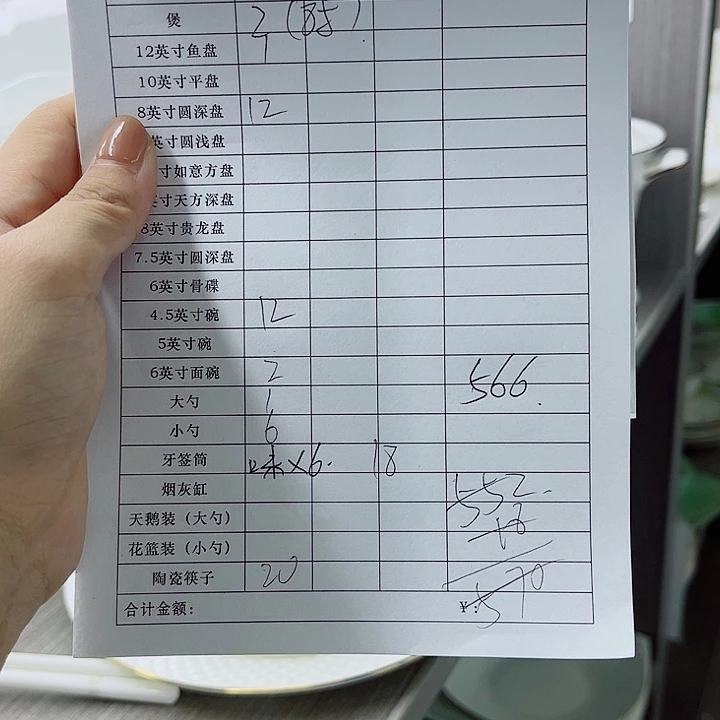 煲 2
12英寸鱼盘 1
10英寸平盘
8英寸圆深盘 12
英寸圆浅盘
寸如意方盘
寸天方深盘
8英寸贵龙盘
7.5英寸圆深盘
6英寸骨碟
4.5英寸碗 12
5英寸碗
6英寸面碗 2 566
大勺 1
小勺 6
牙签筒 味×6. 18
烟灰缸 552
天鹅装（大勺） 18
花篮装（小勺）
陶瓷筷子 20 570
合计金额： ￥：